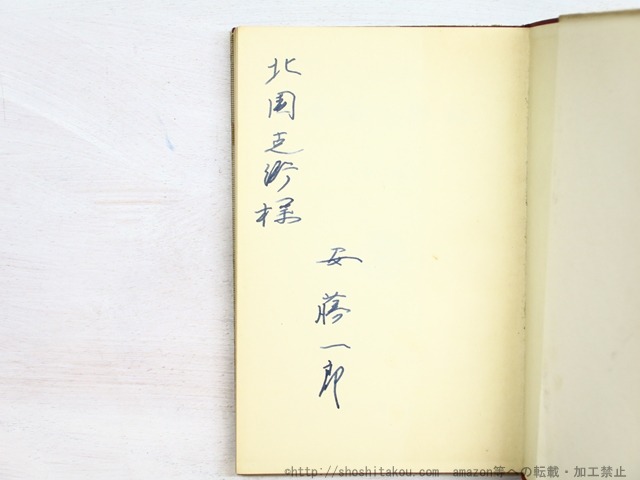 北園克衛様
安藤一郎
©http://shoshitakou.com amazon等への転載・加工禁止